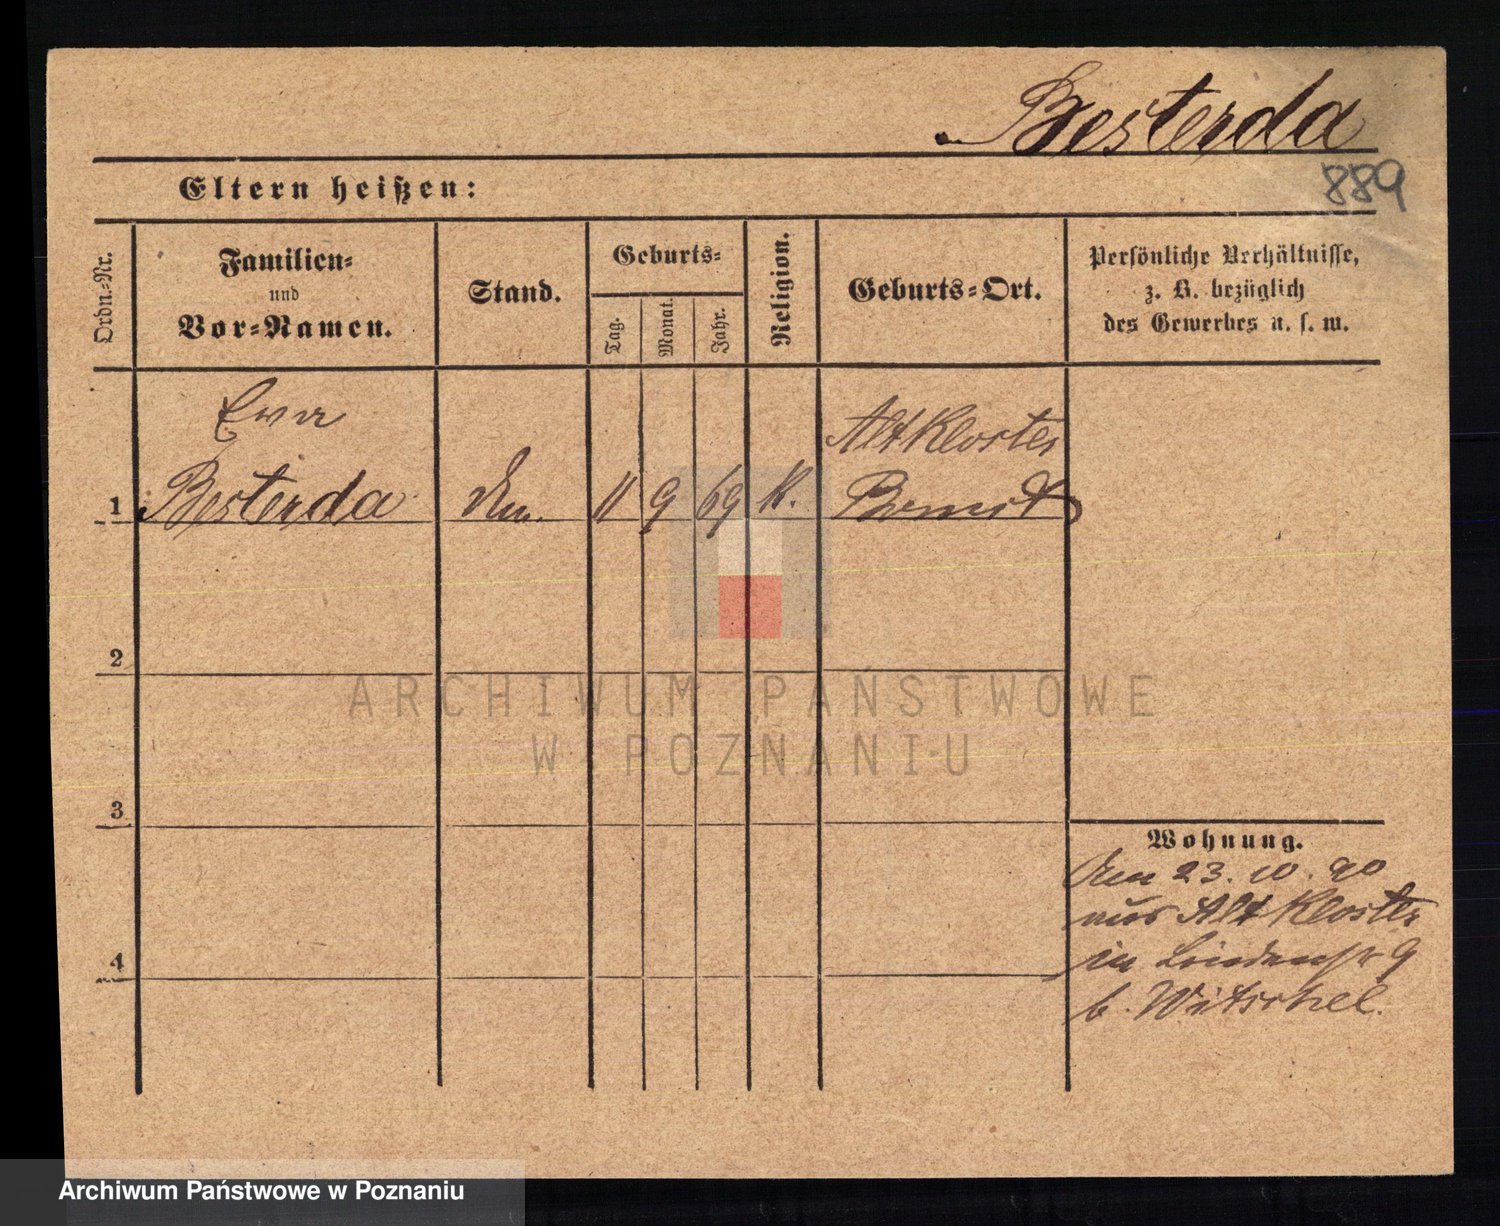 Besterda
889
Eltern heißen:
Ordn.-Nr.
Familien-
und
Vor-Namen.
Stand.
Geburts-
Tag.
Monat.
Jahr.
Religion.
Geburts-Ort.
Persönliche Verhältnisse,
z. B. bezüglich
des Gewerbes u. s. w.
Eva
Alt Kloster
1 Besterda 11 9 69 K. Bomst
2
ARCHIWUM PAŃSTWOWE
W POZNANIU
3
Wohnung.
23. 10. 90
aus Alt Kloster
in 9
b. Witschel.
4
Archiwum Państwowe w Poznaniu